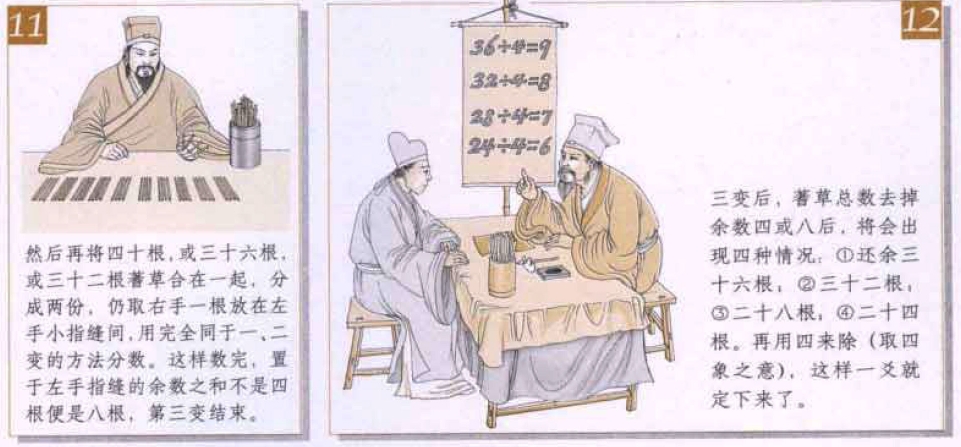 11
然后再将四十根，或三十六根，
或三十二根蓍草合在一起，分
成两份，仍取右手一根放在左
手小指缝间，用完全同于一、二
变的方法分数。这样数完，置
于左手指缝的余数之和不是四
根便是八根，第三变结束。
12
36÷4=9
32÷4=8
28÷4=7
24÷4=6
三变后，蓍草总数去掉
余数四或八后，将会出
现四种情况：①还余三
十六根；②三十二根；
③二十八根；④二十四
根。再用四来除（取四
象之意），这样一爻就
定下来了。